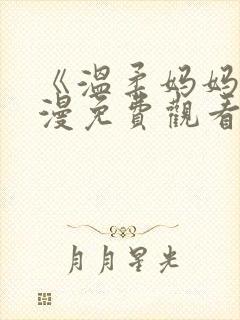 《溫柔妈妈
漫免費觀看
月月星光